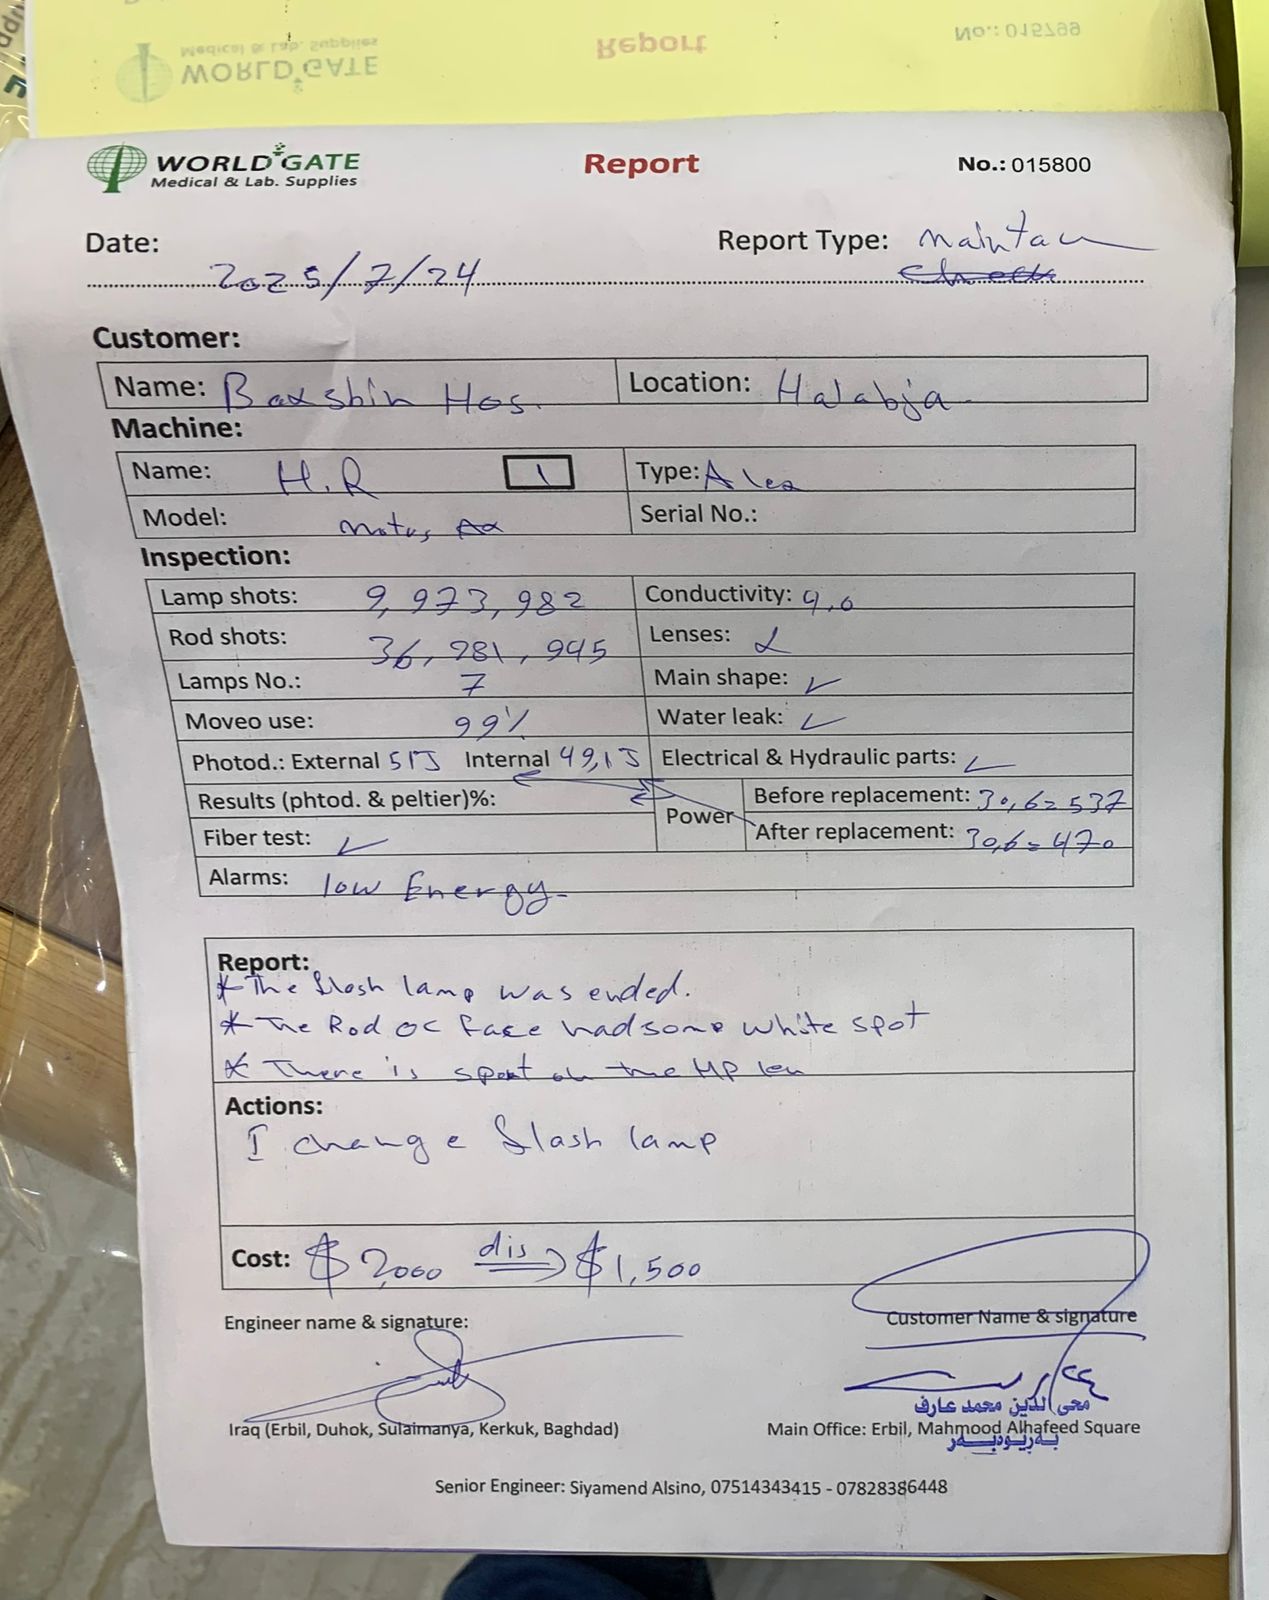 WORLD GATE
Medical & Lab. Supplies
Report
No.: 015799
WORLD GATE
Medical & Lab. Supplies
Report
No.: 015800
Date: 2025/7/24
Report Type: maintan
Check
Customer:
Name: Baxshin Hos. Location: Halabja
Machine:
Name: H.R 1 Type: Alex
Model: motus Ax Serial No.:
Inspection:
Lamp shots: 9,973,982 Conductivity: 4,0
Rod shots: 36,281,945 Lenses:
Lamps No.: 7 Main shape: ✓
Moveo use: 99% Water leak: ✓
Photod.: External 51J Internal 49,1J Electrical & Hydraulic parts: ✓
Results (phtod. & peltier)%: Power Before replacement: 30,6=537
Fiber test: ✓ After replacement: 30,6=470
Alarms: low Energy-
Report:
* The flash lamp was ended.
* The Rod oc face had some white spot
* There is spot on the HP len
Actions:
I change flash lamp
Cost: $2,000 dis $1,500
Engineer name & signature:
Customer Name & signature
محی الدین محمد عارف
Iraq (Erbil, Duhok, Sulaimanya, Kerkuk, Baghdad)
Main Office: Erbil, Mahmood Alhafeed Square
بەڕێوەبەر
Senior Engineer: Siyamend Alsino, 07514343415 - 07828386448